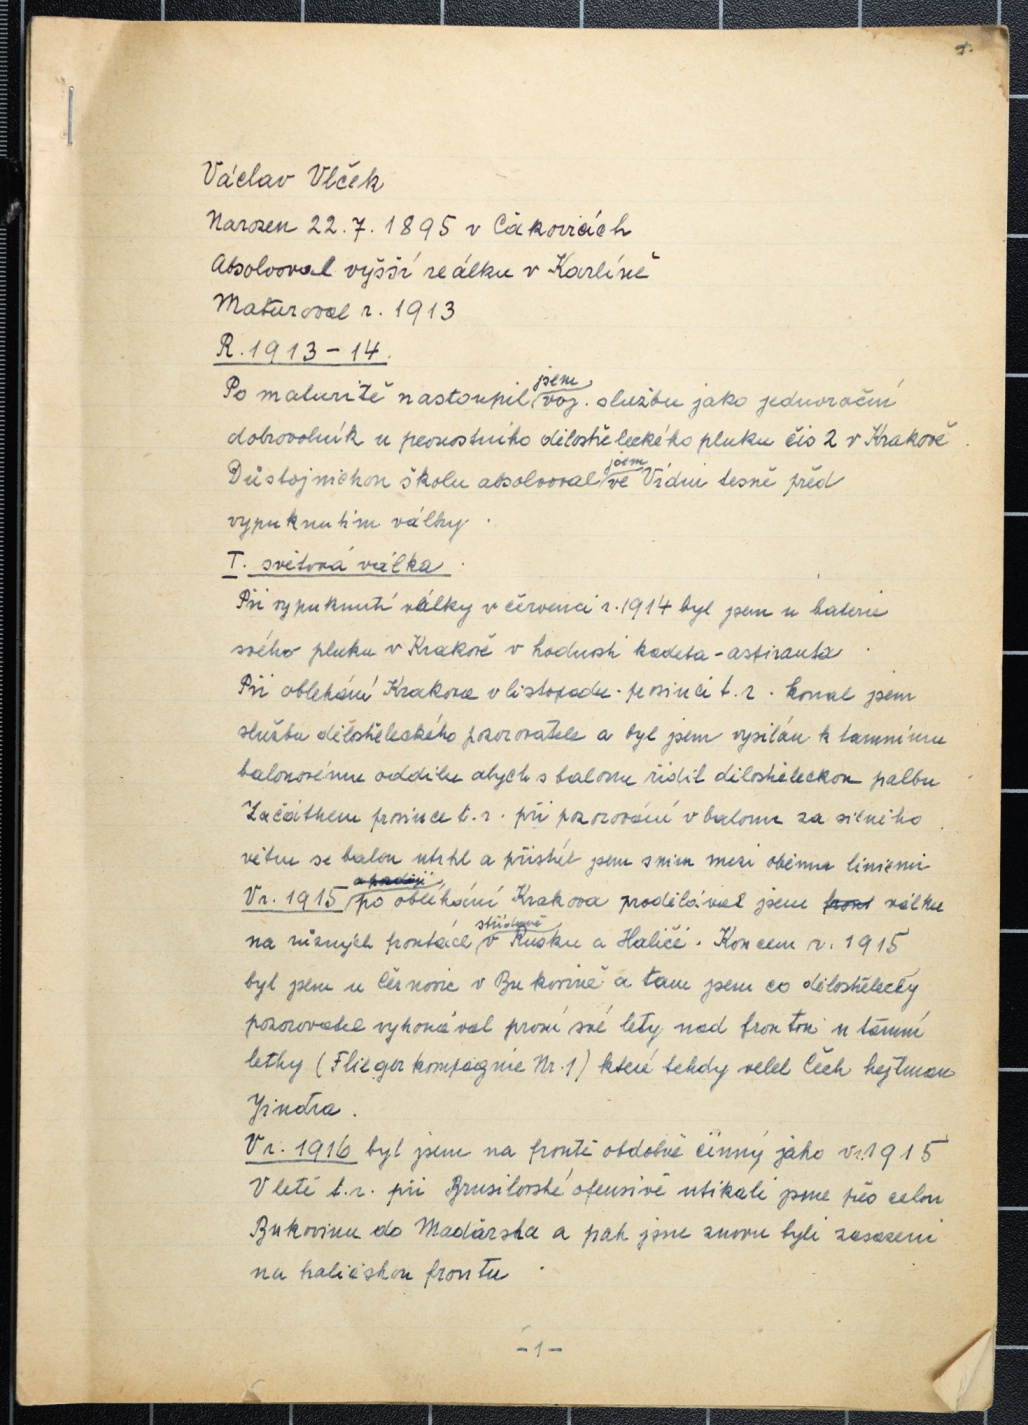 Václav Vlček
Narozen 22.7.1895 v Čakovicích
Absolvoval vyšší reálku v Karlíně
Maturoval r. 1913
R. 1913-14.
Po maturitě nastoupil jsem voj. službu jako jednoroční
dobrovolník u pevnostního dělostřeleckého pluku čís 2 v Krakově.
Důstojnickou školu absolvoval jsem ve Vídni těsně před
vypuknutím války.
I. světová válka.
Při vypuknutí války v červenci r. 1914 byl jsem u baterie
svého pluku v Krakově v hodnosti kadeta-aspiranta.
Při obléhání Krakova v listopadu-prosinci t.r. konal jsem
službu dělostřeleckého pozorovatele a byl jsem vysílán k tamnímu
balonovému oddílu abych s balonu řídil dělostřeleckou palbu.
Začátkem prosince t.r. při pozorování v balonu za silného
větru se balon utrhl a přistál jsem s ním mezi oběma liniemi
V r. 1915 po obléhání Krakova prodělával jsem válku
na různých frontách střídavě v Rusku a Haliči. Koncem r. 1915
byl jsem u Černovic v Bukovině a tam jsem co dělostřelecký
pozorovatel vykonával první své lety nad frontou u tamní
letky (Fliegerkompagnie Nr. 1) které tehdy velel Čech hejtman
Jindra.
V r. 1916 byl jsem na frontě obdobně činný jako v r. 1915
V létě t.r. při Brusilovské ofensivě utíkali jsme přes celou
Bukovinu do Maďarska a pak jsme znovu byli zasazeni
na haličskou frontu.
-1-